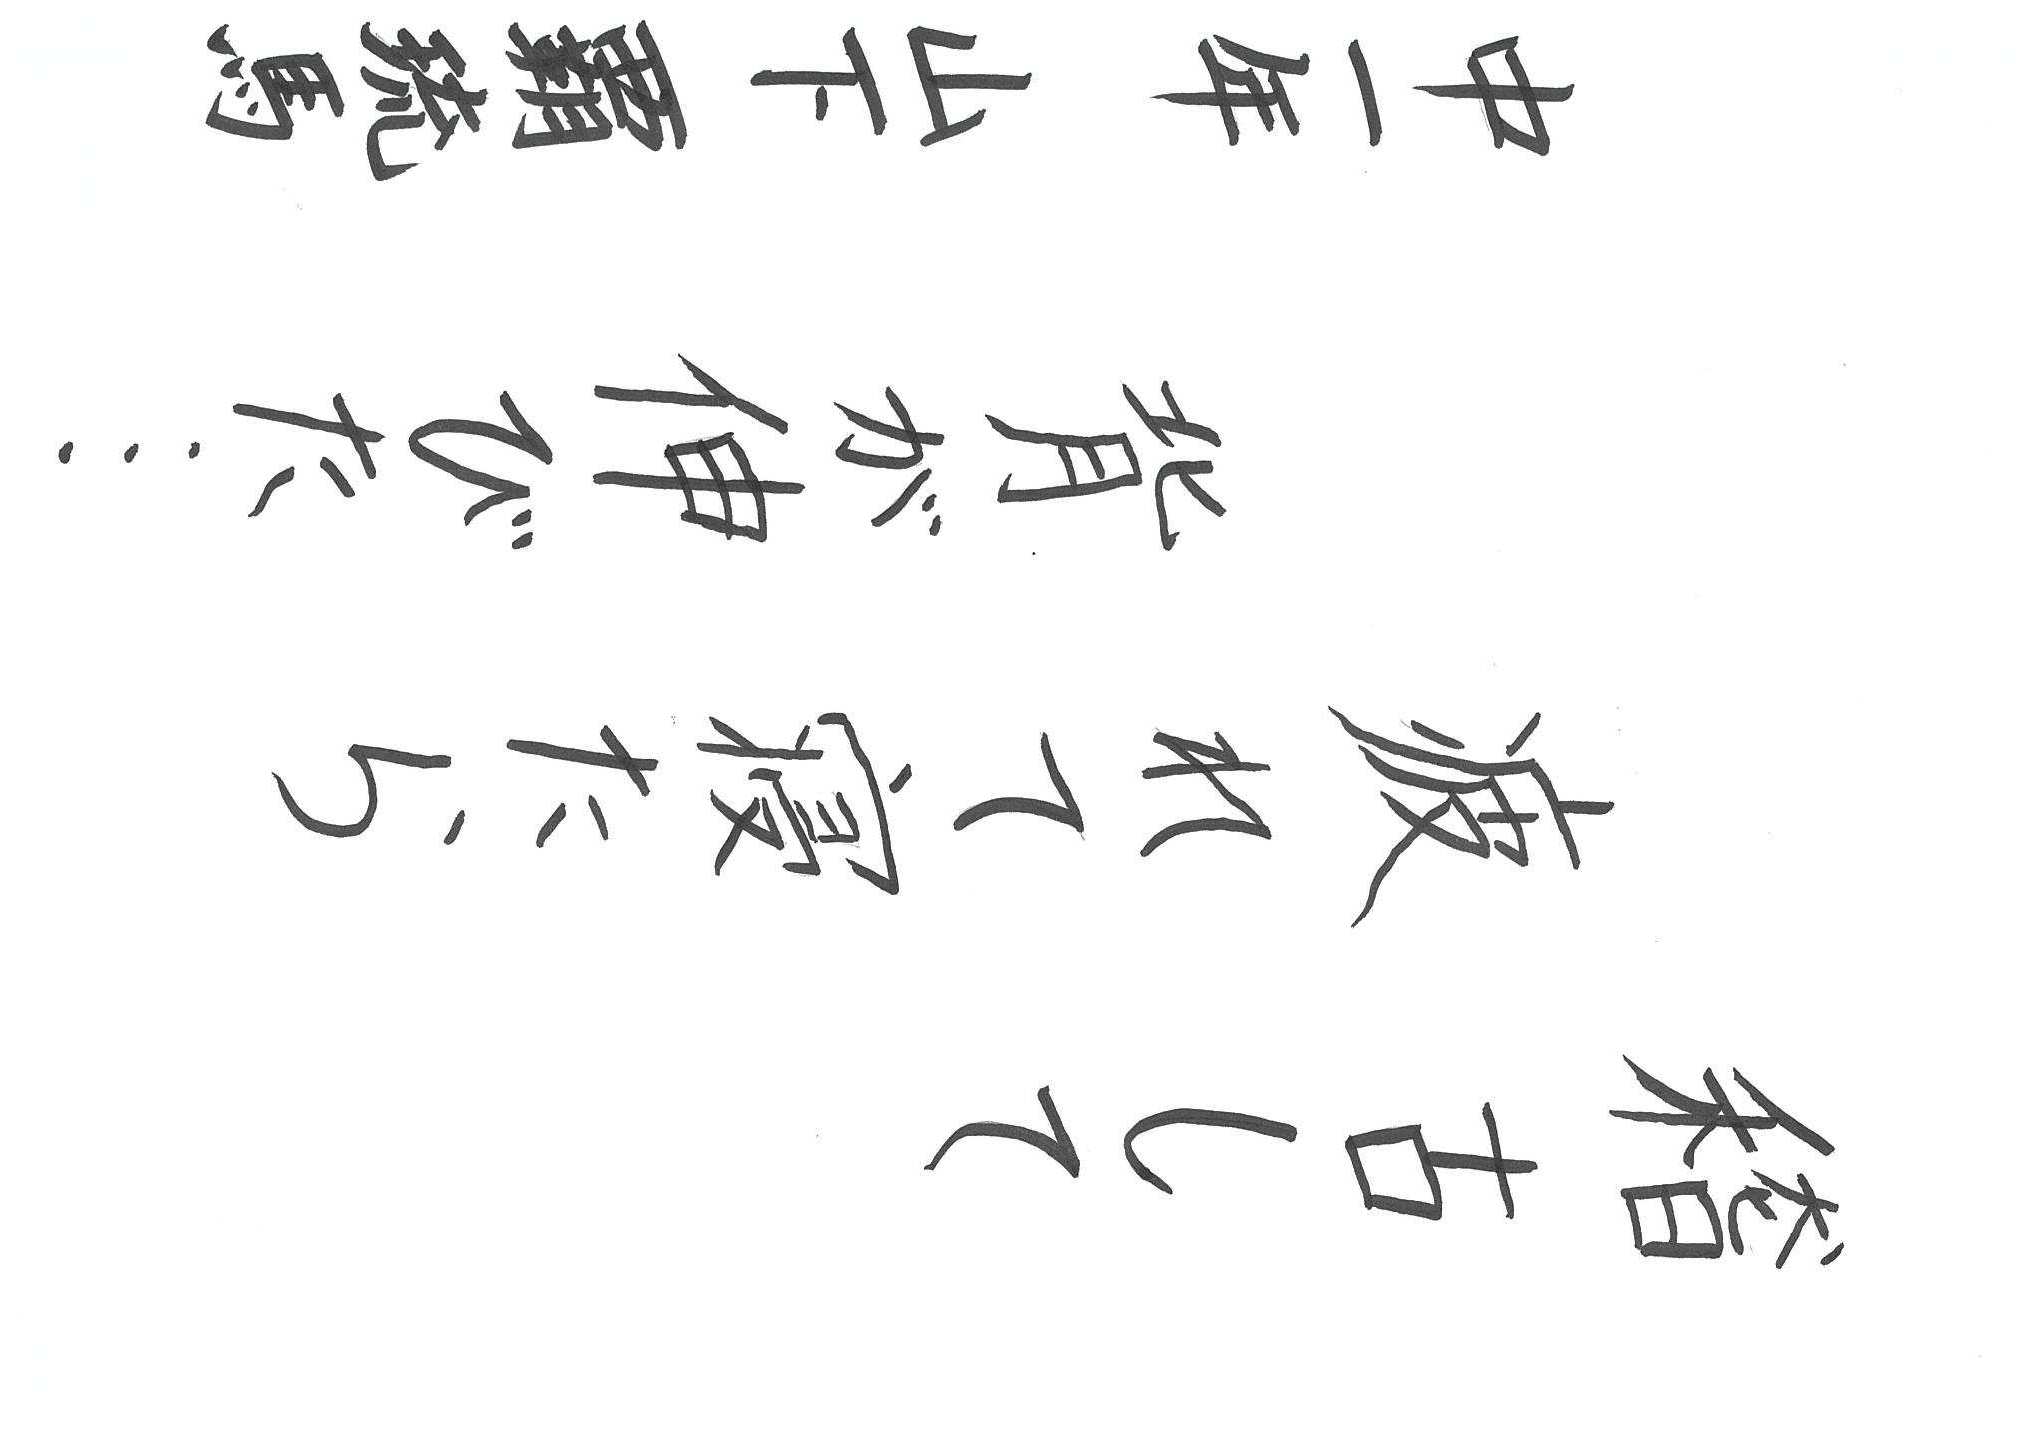 稽古して
疲れて寝たら
背が伸びた…
中一年 山下 覇琉馬